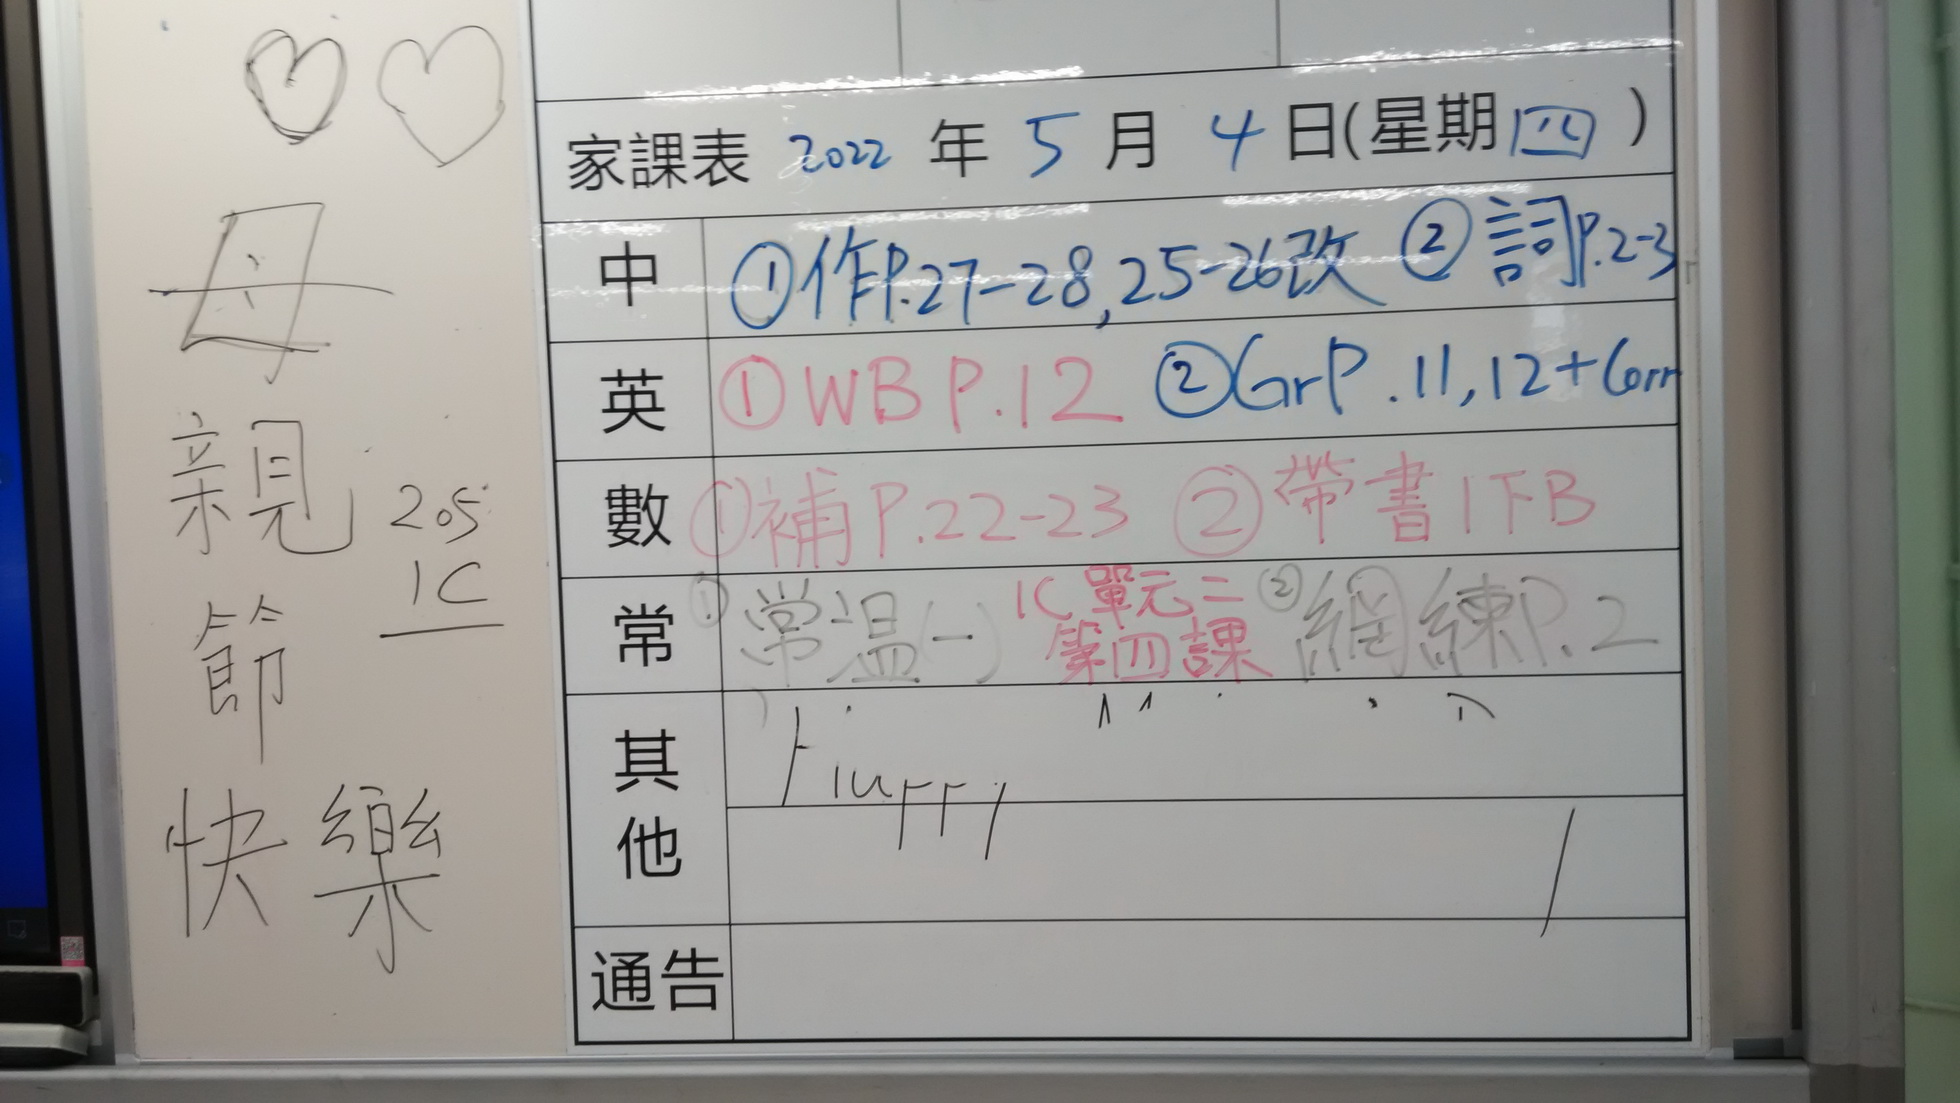 母
親
節
快樂
205
1C
家課表 2022 年 5 月 4 日(星期四)
中 ①作P.27-28,25-26改 ②詞P.2-3
英 ①WB P.12 ②GrP.11,12+Corr
數 ①補P.22-23 ②帶書1下B
常 ①常溫(一) 1C 單元二 第四課 ②網練P.2
其他
通告